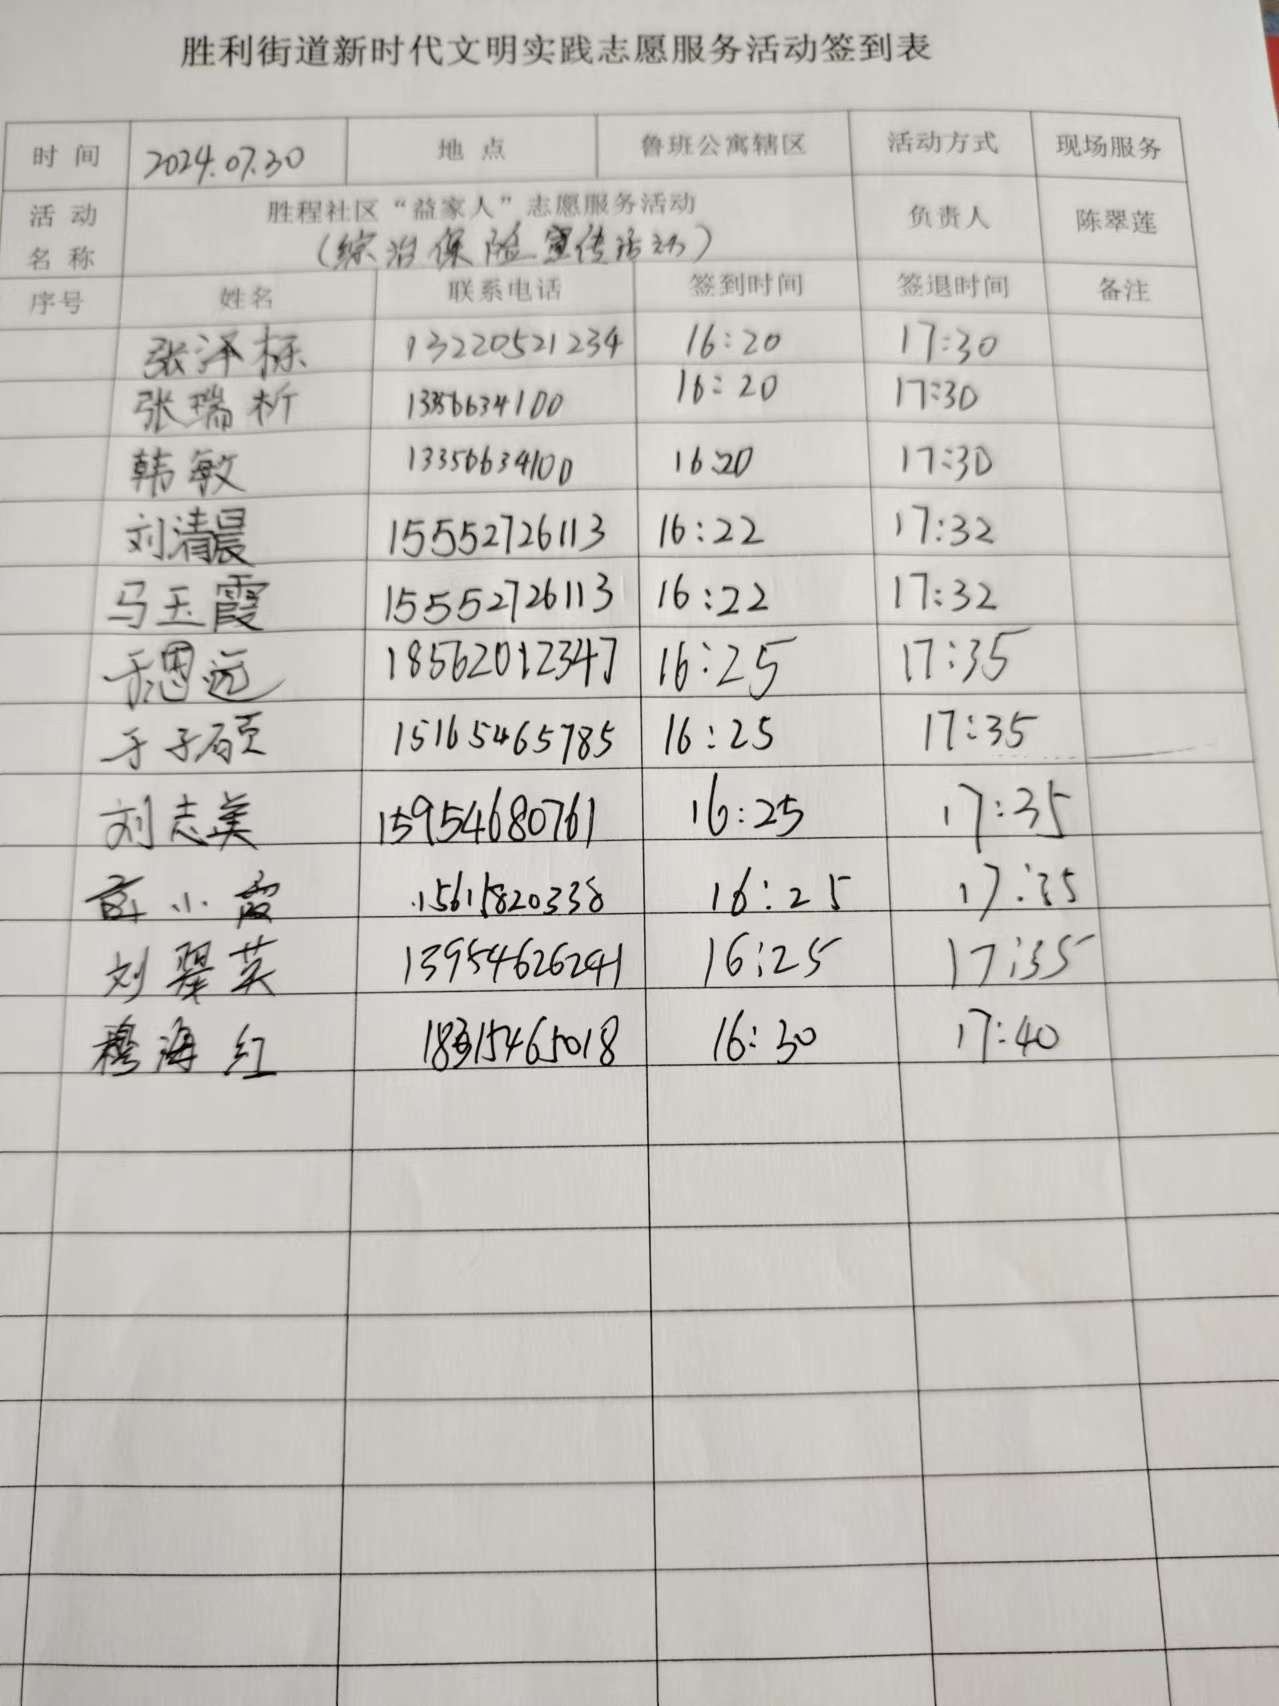 胜利街道新时代文明实践志愿服务活动签到表
时间 2024.07.30 地点 鲁班公寓辖区 活动方式 现场服务
活动名称 胜程社区“益家人”志愿服务活动 负责人 陈翠莲
(综治保险宣传活动)
序号 姓名 联系电话 签到时间 签退时间 备注
张泽栎 13220521234 16:20 17:30
张瑞析 13356634100 16:20 17:30
韩敏 13356634100 16:20 17:30
刘清晨 15552726113 16:22 17:32
马玉霞 15552726113 16:22 17:32
于恩远 18562012347 16:25 17:35
于子硕 15165465785 16:25 17:35
刘志美 15954680761 16:25 17:35
小霞 15615820338 16:25 17:35
刘翠英 13954626241 16:25 17:35
穆海红 18315465018 16:30 17:40